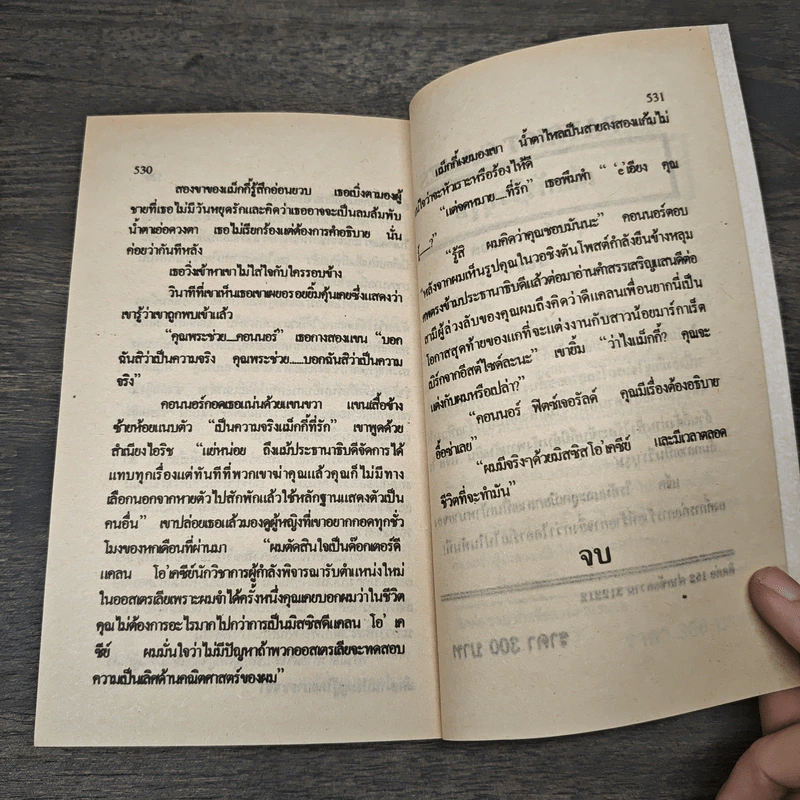 530
สองขาของแม็กกี้รู้สึกอ่อนยวบ เธอเบิ่งตามองผู้
ชายที่เธอไม่มีวันหยุดรักและคิดว่าเธออาจจะเป็นลมล้มพับ
น้ำตาเอ่อดวงตา เธอไม่เรียกร้องแต่ต้องการคำอธิบาย นั่น
ค่อยว่ากันทีหลัง
เธอวิ่งเข้าหาเขาไม่ใส่ใจกับใครรอบข้าง
วินาทีที่เขาเห็นเธอเขาเผยรอยยิ้มคุ้นเคยซึ่งแสดงว่า
เขารู้ว่าเขาถูกพบเข้าแล้ว
“คุณพระช่วย....คอนนอร์” เธอกางสองแขน “บอก
ฉันสิว่าเป็นความจริง คุณพระช่วย.....บอกฉันสิว่าเป็นความ
จริง”
คอนนอร์กอดเธอแน่นด้วยแขนขวา แขนเสื้อข้าง
ซ้ายห้อยแนบตัว “เป็นความจริงแม็กกี้ที่รัก” เขาพูดด้วย
สำเนียงไอริช “แย่หน่อย ถึงแม้ประธานาธิบดีจัดการได้
แทบทุกเรื่องแต่ทันทีที่พวกเขาฆ่าคุณแล้วคุณก็ไม่มีทาง
เลือกนอกจากหายตัวไปสักพักแล้วใช้หลักฐานแสดงตัวเป็น
คนอื่น” เขาปล่อยเธอแล้วมองดูผู้หญิงที่เขาอยากกอดทุกชั่ว
โมงของหกเดือนที่ผ่านมา “ผมตัดสินใจเป็นด็อกเตอร์ดี
แคลน โอ'เคซีย์นักวิชาการผู้กำลังพิจารณารับตำแหน่งใหม่
ในออสเตรเลียเพราะผมจำได้ครั้งหนึ่งคุณเคยบอกผมว่าในชีวิต
คุณไม่ต้องการอะไรมากไปกว่าการเป็นมิสซิสดีแคลน โอ' เค
ซีย์ ผมมั่นใจว่าไม่มีปัญหาถ้าพวกออสเตรเลียจะทดสอบ
ความเป็นเลิศด้านคณิตศาสตร์ของผม”
531
แม็กกี้เงยมองเขา น้ำตาไหลเป็นสายลงสองแก้มไม่
ใจว่าจะหัวเราะหรือร้องไห้ดี
“แต่จดหมาย....ที่รัก” เธอพึมพำ “ 'e'เอียง คุณ
“รู้สิ ผมคิดว่าคุณชอบมันนะ” คอนนอร์ตอบ
หลังจากผมเห็นรูปคุณในวอชิงตันโพสต์กำลังยืนข้างหลุม
ตรงข้ามประธานาธิบดีแล้วต่อมาอ่านคำสรรเสริญแสนดีต่อ
สามีผู้ล่วงลับของคุณผมถึงคิดว่าดีแคลนเพื่อนยากนี่เป็น
โอกาสสุดท้ายของแกที่จะแต่งงานกับสาวน้อยมาร์กาเร็ต
เบิร์กจากอีสต์ไซด์ละนะ” เขายิ้ม “ว่าไงแม็กกี้? คุณจะ
แต่งกับผมหรือเปล่า?”
“คอนนอร์ ฟิตซ์เจอรัลด์ คุณมีเรื่องต้องอธิบาย
อื้อซ่าเลย”
“ผมมีจริงๆด้วยมิสซิสโอ'เคซีย์ และมีเวลาตลอด
ชีวิตที่จะทำมัน”
จบ
ราคา 300 บาท